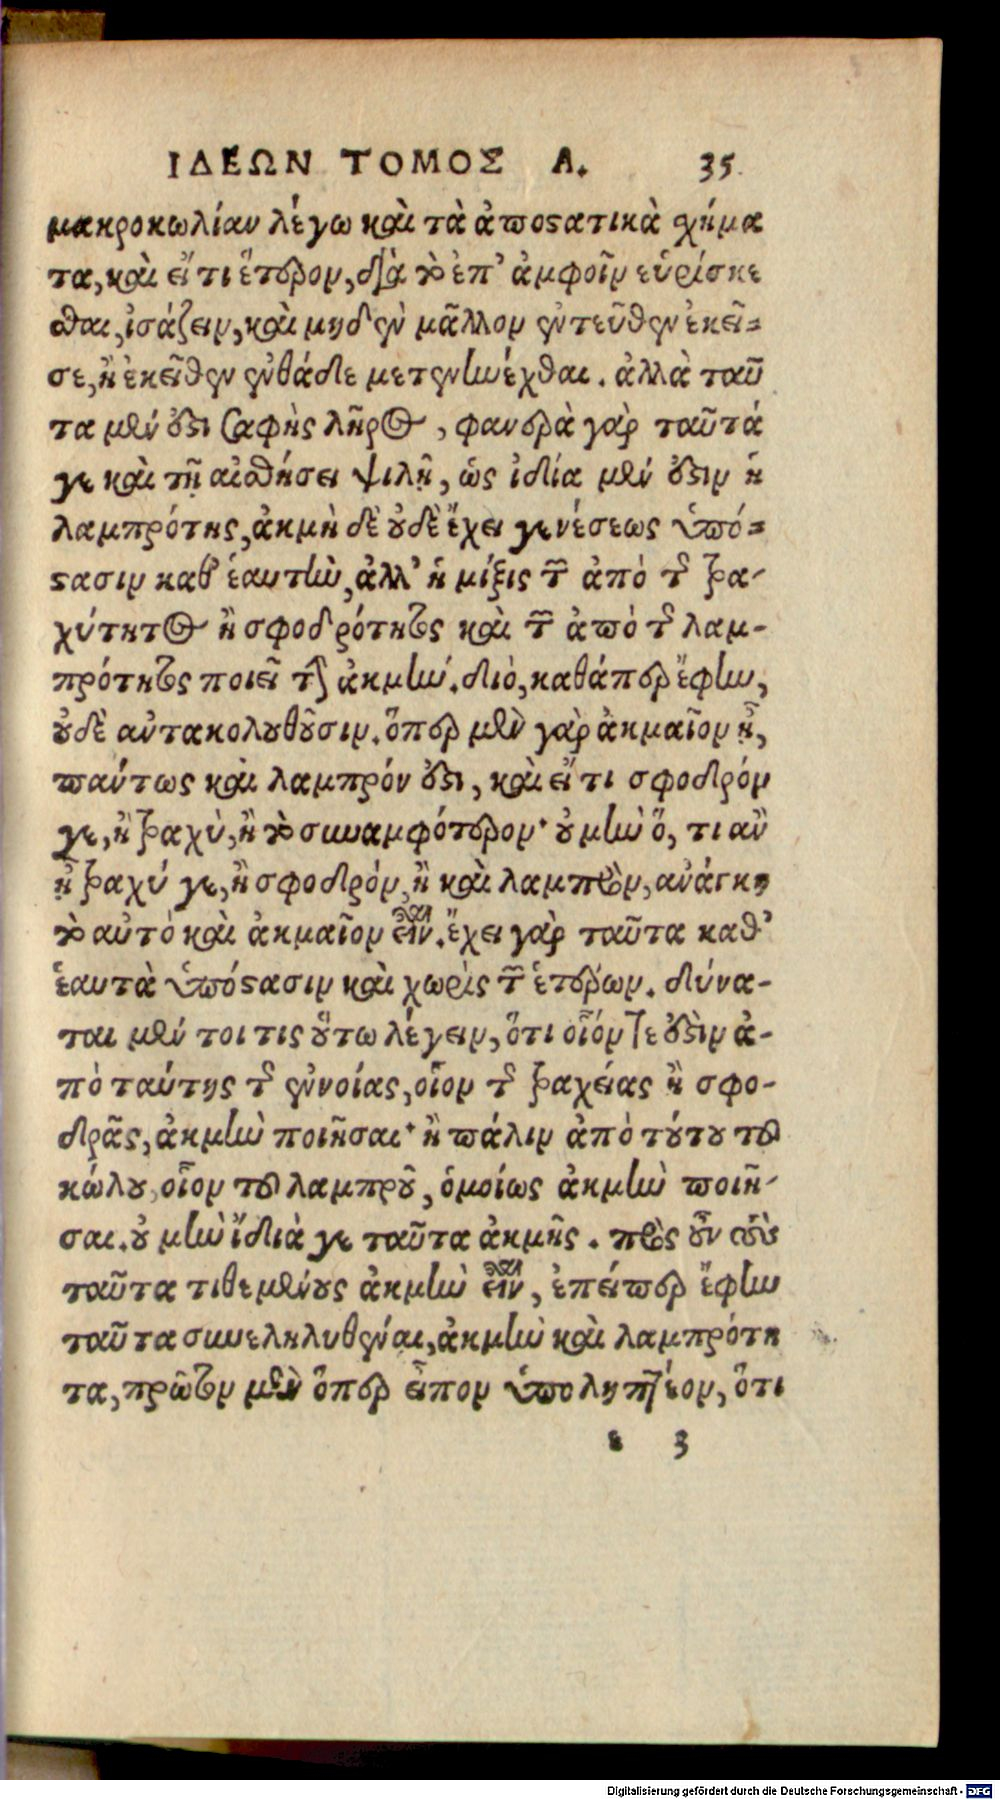 ΙΔΕΩΝ ΤΟΜΟΣ Α. 35
μακροκωλίαν λέγω καὶ τὰ ἀποϛατικὰ χήμα
τα, καὶ εἴ τι ἕτερον, διὰ τὸ ἐπ' ἀμφοῖν εὑρίσκε
σθαι, ἰσάζειν, καὶ μηδὲν μᾶλλον ἐντεῦθεν ἐκεῖ-
σε, ἢ ἐκεῖθεν ἐνθάδε μετενηνέχθαι. ἀλλὰ ταῦ
τα μέν ἐϛι σαφὴς λῆρος, φανερὰ γὰρ ταῦτά
γε καὶ τῇ αἰσθήσει ψιλῇ, ὡς ἰδία μέν ἐϛιν ἡ
λαμπρότης, ἀκμὴ δὲ οὐδὲ ἔχει γενέσεως ὑπό-
ϛασιν καθ' ἑαυτὴν, ἀλλ' ἡ μίξις τῶν ἀπὸ τῆς τρα-
χύτητος ἢ σφοδρότητος καὶ τῶν ἀπὸ τῆς λαμ-
πρότητος ποιεῖ τὴν ἀκμήν. διὸ, καθάπερ ἔφην,
οὐδὲ ἀντακολουθοῦσιν. ὅπερ μὲν γὰρ ἀκμαῖον ᾖ,
πάντως καὶ λαμπρόν ἐϛι, καὶ εἴ τι σφοδρόν
γε, ἢ τραχὺ, ἢ τὸ συναμφότερον· οὐ μὴν ὅ, τι ἂν
ᾖ τραχύ γε, ἢ σφοδρόν, ἢ καὶ λαμπρὸν, ἀνάγκη
τὸ αὐτὸ καὶ ἀκμαῖον εἶναι. ἔχει γὰρ ταῦτα καθ'
ἑαυτὰ ὑπόϛασιν καὶ χωρὶς τῶν ἑτέρων. δύνα-
ται μέν τοι τις οὕτω λέγειν, ὅτι οἷόν τε ἐϛὶν ἀ-
πὸ ταύτης τῆς ἐννοίας, οἷον τῆς τραχείας ἢ σφο-
δρᾶς, ἀκμὴν ποιῆσαι· ἢ πάλιν ἀπὸ τούτου τοῦ
κώλου, οἷον τοῦ λαμπροῦ, ὁμοίως ἀκμὴν ποιῆ-
σαι. οὐ μὴν ἴδιά γε ταῦτα ἀκμῆς. πρὸς οὖν τοὺς
ταῦτα τιθεμένους ἀκμὴν εἶναι, ἐπείπερ ἔφην
ταῦτα συνεληλυθέναι, ἀκμὴν καὶ λαμπρότη
τα, πρῶτον μὲν ὅπερ εἶπον ὑποληπτέον, ὅτι
ε 3
Digitalisierung gefördert durch die Deutsche Forschungsgemeinschaft - DFG